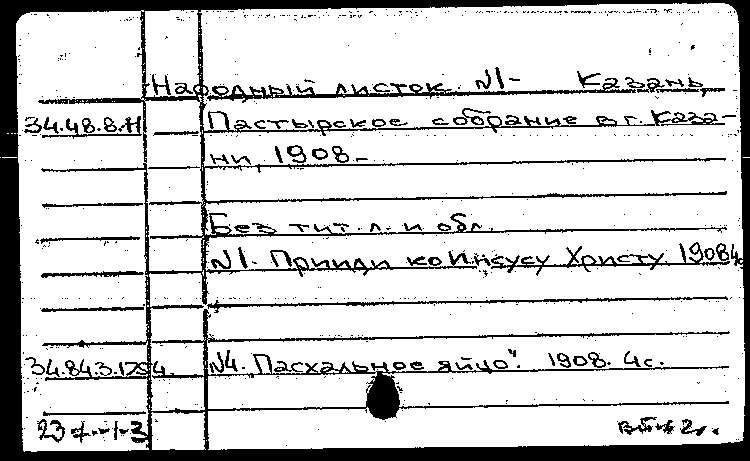 Народный листок. №1- Казань,
34.48.8.Н Пастырское собрание в г. Каза-
ни, 1908.-
Без тит. л. и обл.
№1. Прииди ко Иисусу Христу. 1908 4с
34.84.3.1294. №4. „Пасхальное яйцо". 1908. 4с.